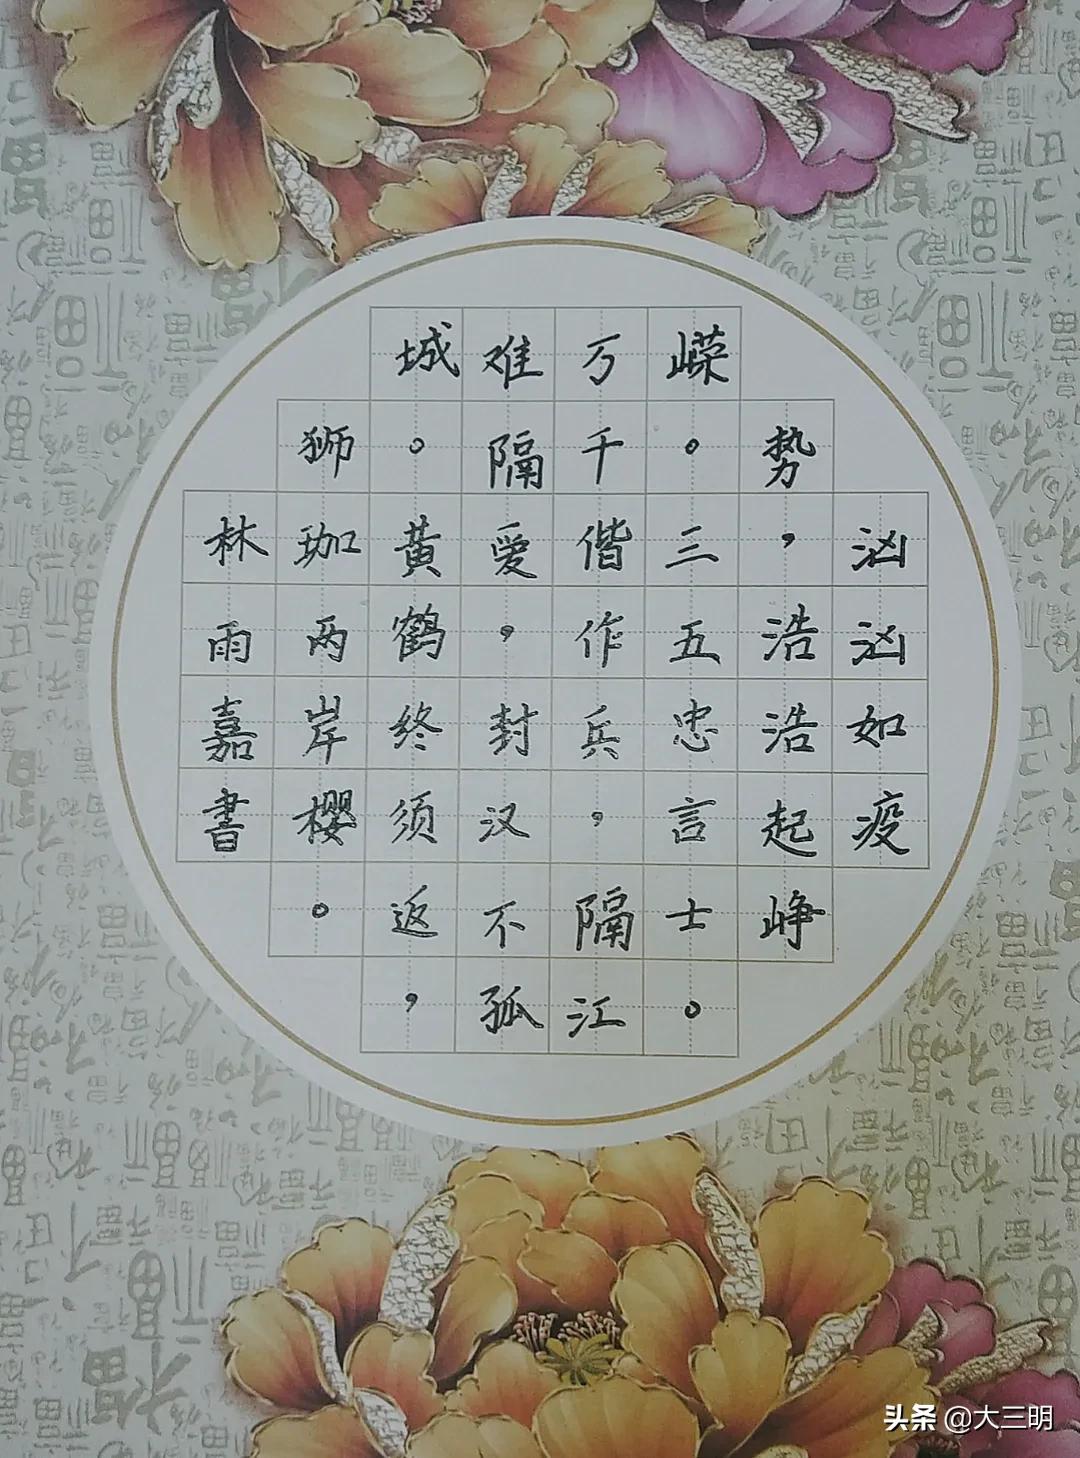 汹汹如疫
势，浩浩起峥
嵘。三五忠言士。
万千偕作兵，隔江
难隔爱，封汉不孤
城。黄鹤终须返，
狮珈两岸樱。
林雨嘉書
头条 @大三明